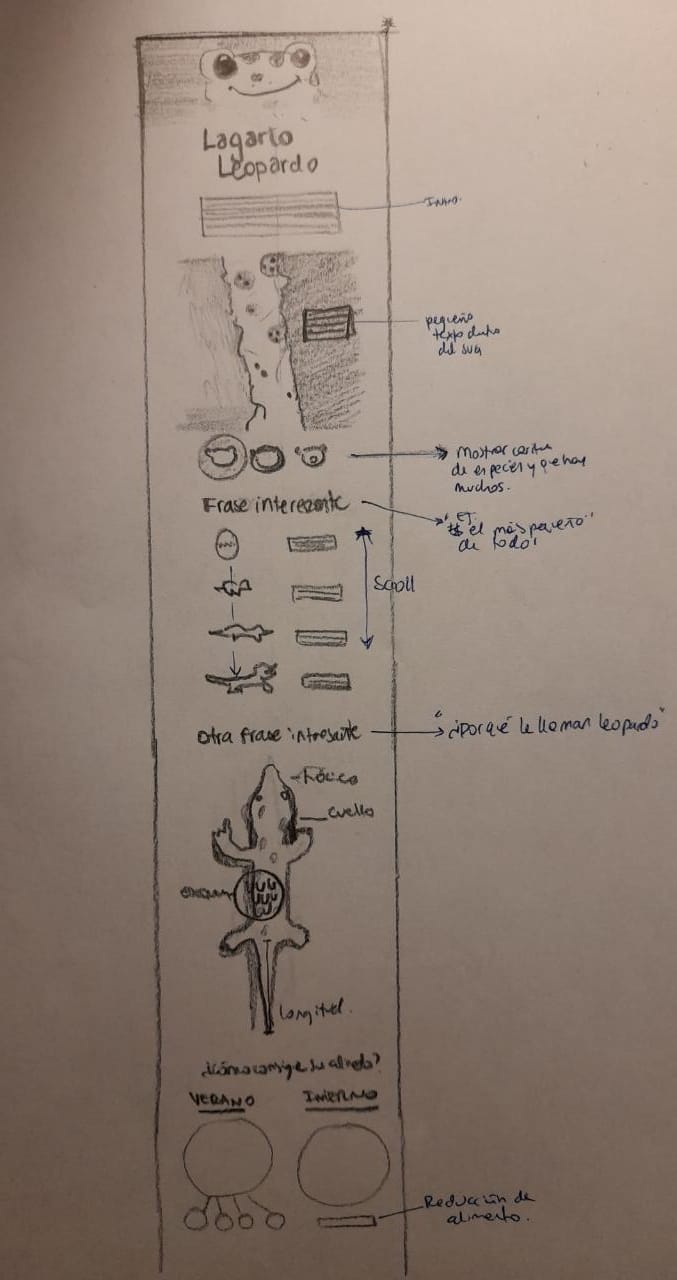 Lagarto
Leopardo
Intro.
pequeño
texto dentro
del svg
Mostrar
de especies y que hay
muchos.
Frase interezante
"ET
es el más pequeño"
de todo!
Scroll
Otra frase interesante
"¿Porqué le llaman leopardo"
Hócico
Cuello
Longitud.
¿Cómo consigue su alimento?
VERANO
INVIERNO
Reducción de
alimento.